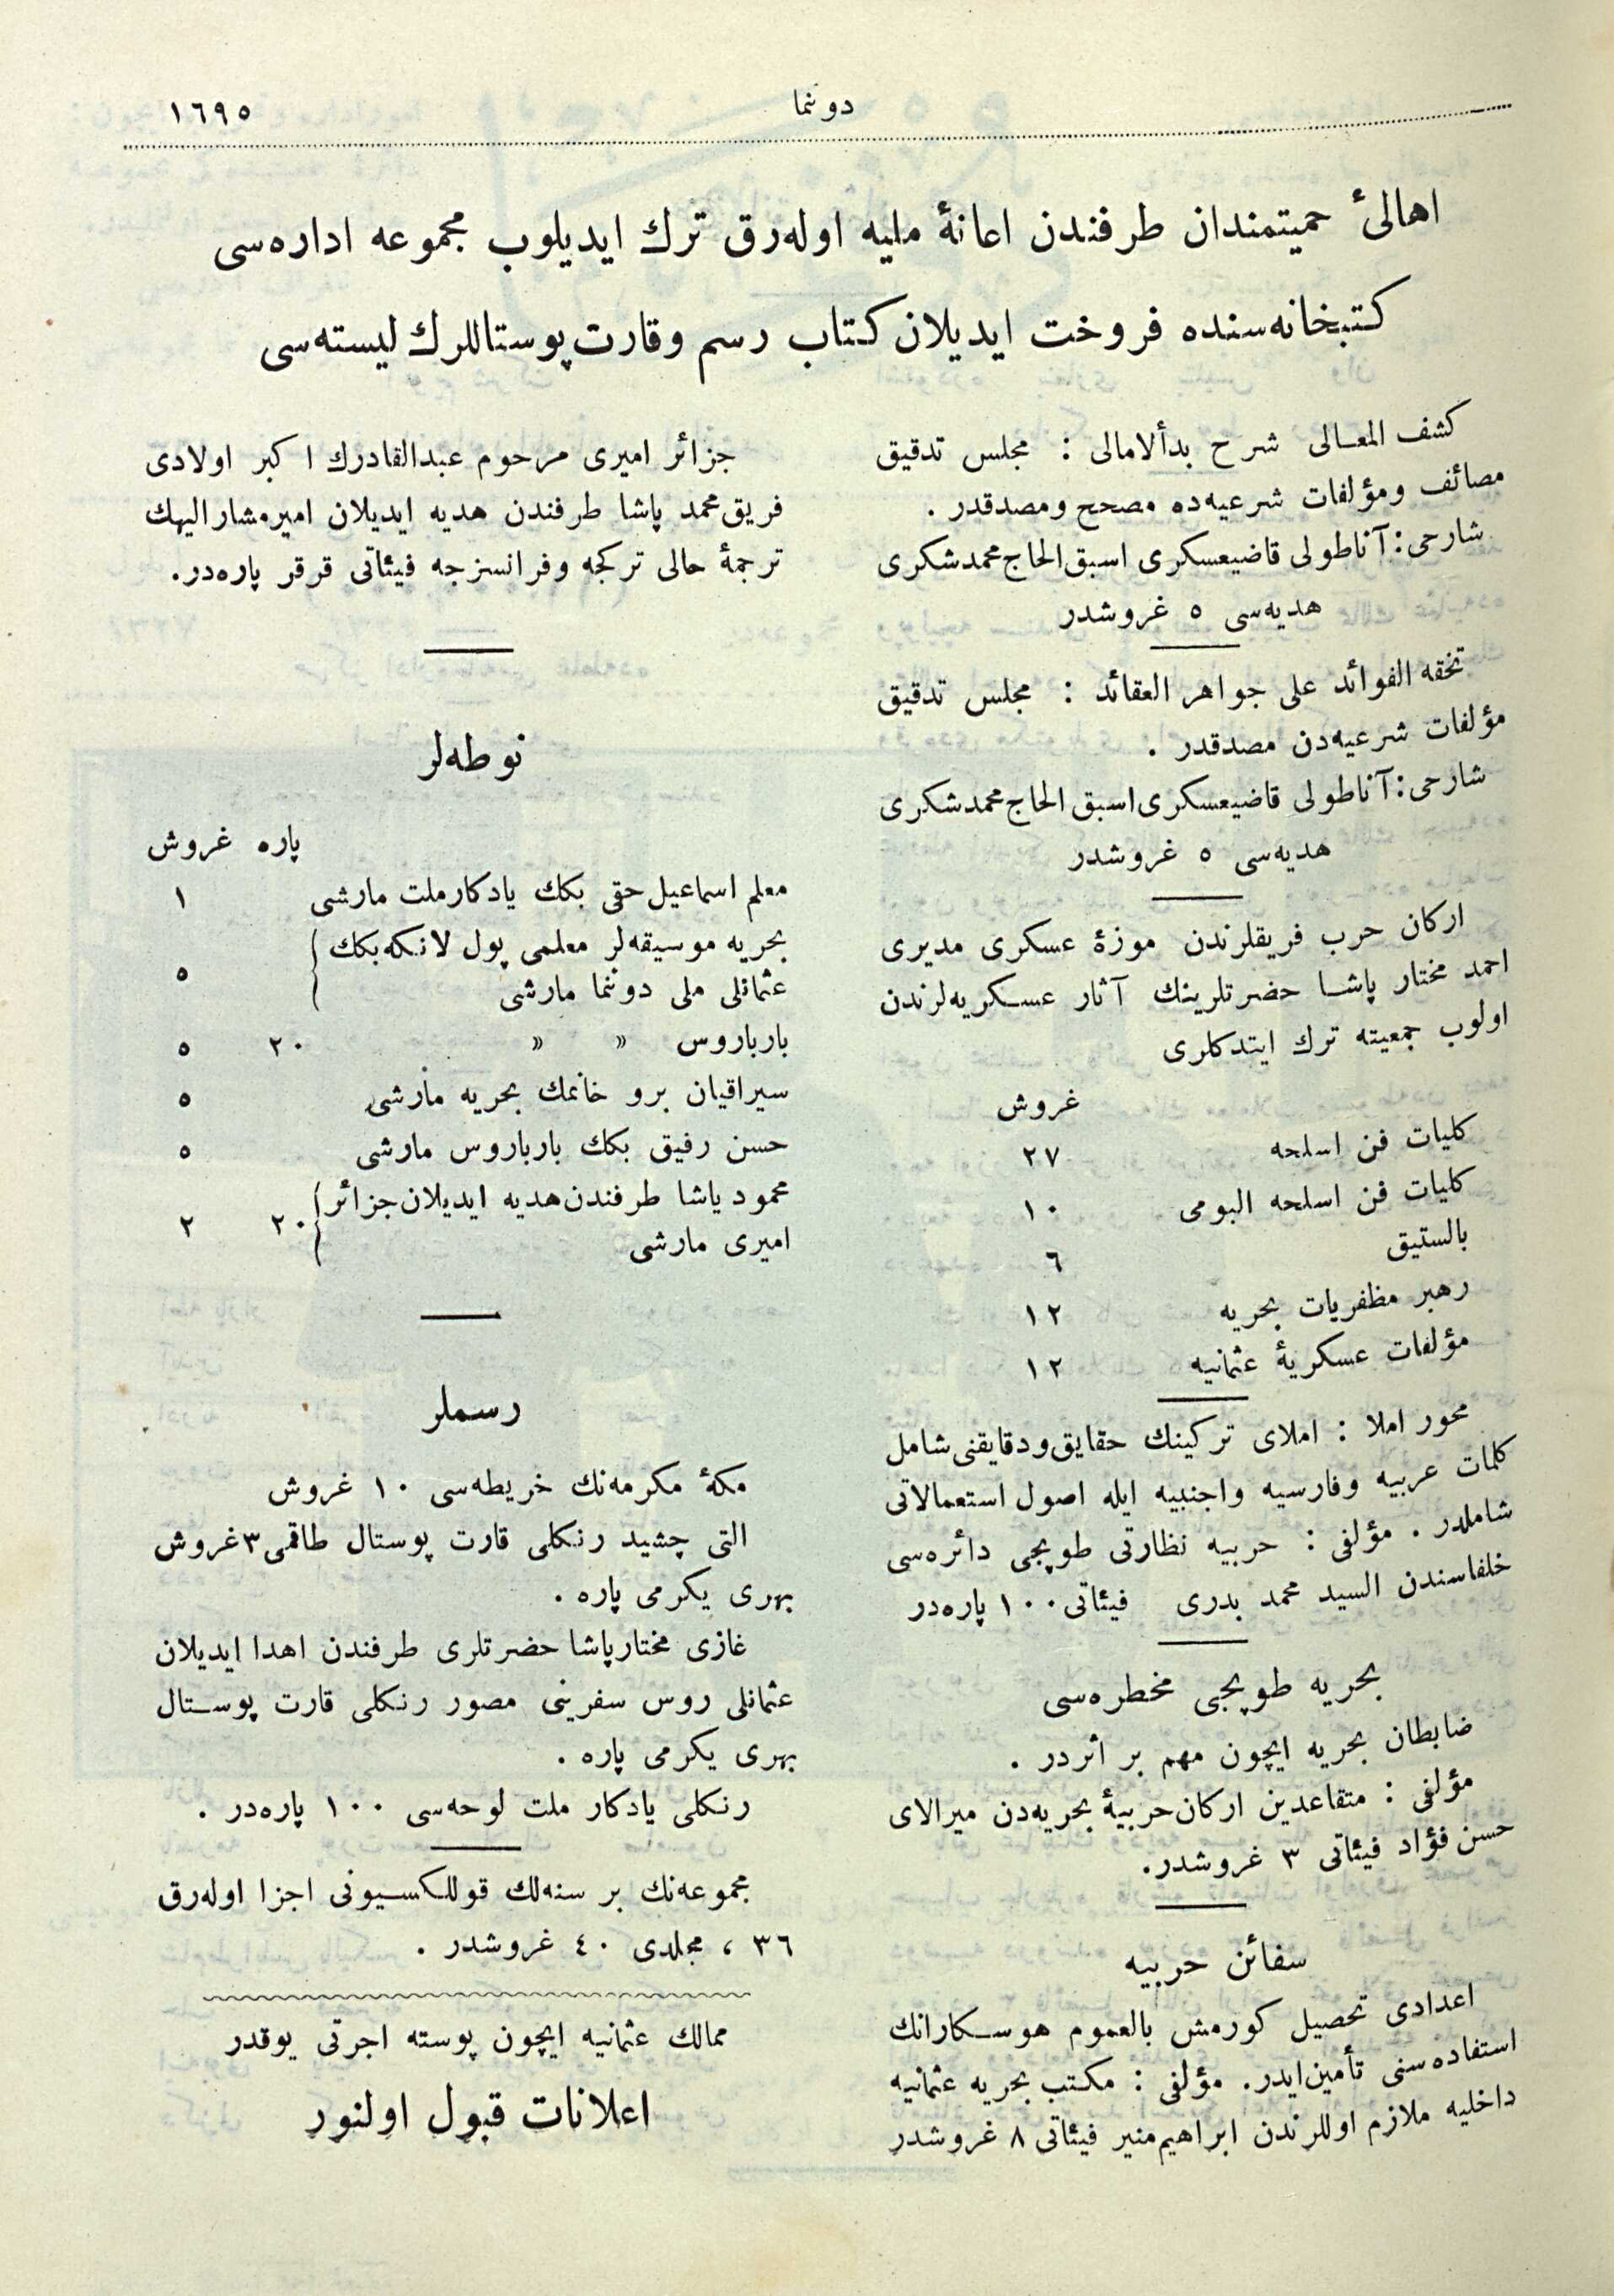 دونما
١٦٩٥
اهالئ حميتمندان طرفندن اعانهٔ مليه اوله‌رق ترك ايديلوب مجموعه اداره‌سى
كتبخانه‌سنده فروخت ايديلان كتاب رسم وقارت پوستاللرك ليسته‌سى
كشف المعالى شرح بدأالامالى : مجلس تدقيق
مصائف ومؤلفات شرعيه‌ده مصحح ومصدقدر .
شارحى : آناطولى قاضيعسكرى اسبق الحاج محمد شكرى
هديه‌سى ٥ غروشدر
تحفه الفوائد على جواهر العقائد : مجلس تدقيق
مؤلفات شرعيه‌دن مصدقدر .
شارحى : آناطولى قاضيعسكرى اسبق الحاج محمد شكرى
هديه‌سى ٥ غروشدر
اركان حرب فريقلرندن موزهٔ عسكرى مديرى
احمد مختار پاشا حضرتلرينك آثار عسكريه‌لرندن
اولوب جمعيته ترك ايتدكلرى
غروش
كليات فن اسلحه ٢٧
كليات فن اسلحه البومى ١٠
بالستيق ٦
رهبر مظفريات بحريه ١٢
مؤلفات عسكريهٔ عثمانيه ١٢
محور املا : املاى تركينك حقايق ودقايقنى شامل
كلمات عربيه وفارسيه واجنبيه ايله اصول استعمالاتى
شاملدر . مؤلفى : حربيه نظارتى طوپجى دائره‌سى
خلفاسندن السيد محمد بدرى فيئاتى ١٠٠ پاره‌در
بحريه طوپجى مخطره‌سى
ضابطان بحريه ايچون مهم بر اثردر .
مؤلفى : متقاعدين اركان حربيهٔ بحريه‌دن ميرالاى
حسن فؤاد فيئاتى ٣ غروشدر .
سفائن حربيه
اعدادى تحصيل كورمش بالعموم هوسكارانك
استفاده‌سنى تأمين ايدر . مؤلفى : مكتب بحريه عثمانيه
داخليه ملازم اوللرندن ابراهيم منير فيئاتى ٨ غروشدر
جزائر اميرى مرحوم عبدالقادرك اكبر اولادى
فريق محمد پاشا طرفندن هديه ايديلان امير مشار اليهك
ترجمهٔ حالى تركجه وفرانسزجه فيئاتى قرقر پاره‌در .
نوطه‌لر
پاره غروش
معلم اسماعيل حقى بكك يادكار ملت مارشى ١
بحريه موسيقه‌لر معلمى پول لانكه بكك
عثمانلى ملى دوننما مارشى ٥
بارباروس » » ٢٠ ٥
سيراقيان برو خانمك بحريه مارشى ٥
حسن رفيق بكك بارباروس مارشى ٥
محمود پاشا طرفندن هديه ايديلان جزائر
اميرى مارشى ٢٠ ٢
رسملر
مكهٔ مكرمه‌نك خريطه‌سى ١٠ غروش
التى چشيد رنكلى قارت پوستال طاقمى ٣ غروش
بهرى يكرمى پاره .
غازى مختار پاشا حضرتلرى طرفندن اهدا ايديلان
عثمانلى روس سفرينى مصور رنكلى قارت پوستال
بهرى يكرمى پاره .
رنكلى يادكار ملت لوحه‌سى ١٠٠ پاره‌در .
مجموعه‌نك بر سنه‌لك قوللكسيونى اجزا اوله‌رق
٣٦ ، مجلدى ٤٠ غروشدر .
ممالك عثمانيه ايچون پوسته اجرتى يوقدر
اعلانات قبول اولنور